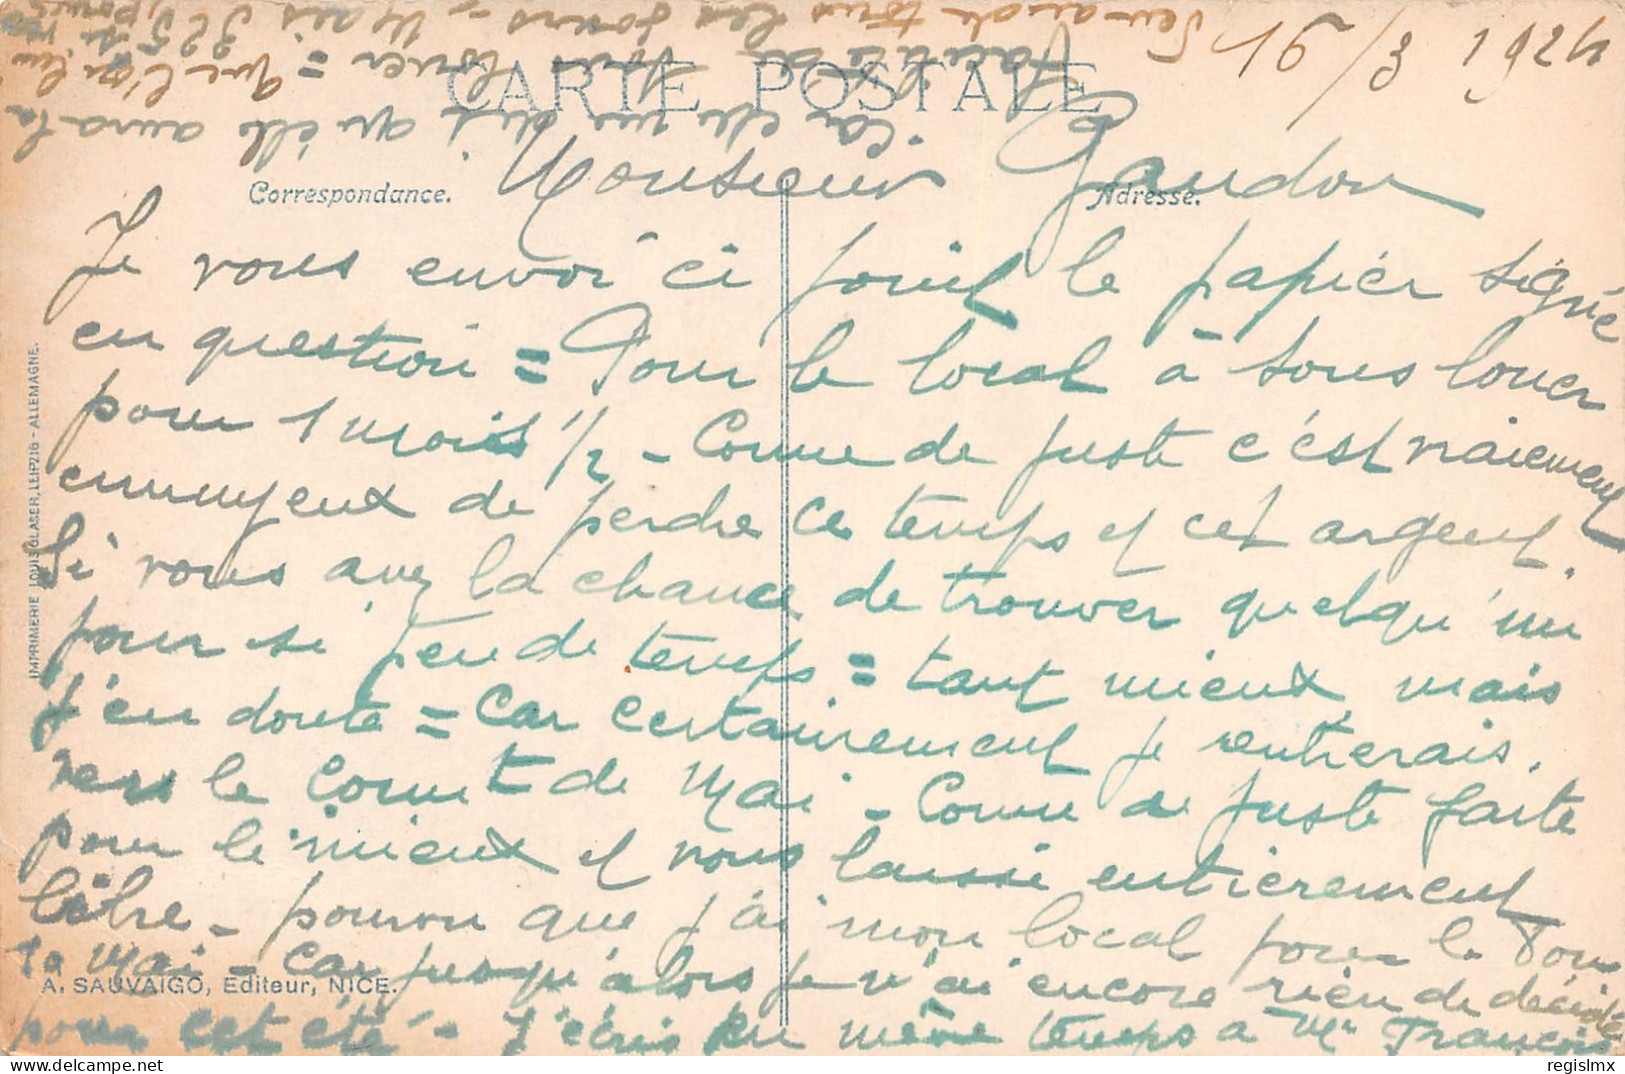 16/3 1924
CARTE POSTALE
Correspondance.
Adresse.
Monsieur Gaudon
Je vous envoi ci joint le papier signé
en question = Pour le local à sous louer
pour 1 mois 1/2 - Comme de juste c'est vraiement
ennuyeux de perdre ce temps et cet argent.
Si vous avez la chance de trouver quelqu'un
pour si peu de temps = tant mieux, mais
j'en doute = car certainement je rentrerais
vers le commt de Mai - Comme de juste faite
pour le mieux et vous laisse entièrement
libre - pourvu que j'ai mon local pour le
10 Mai - Car jusqu'alors je n'ai encore rien de décidé
pour cet été - J'écris en même temps a Mr François
car elle me dit qu'elle aura la
facilité louer = que l'on lui
demande tous les jours - Mais 325
IMPRIMERIE LOUIS GLASER, LEIPZIG - ALLEMAGNE.
A. SAUVAIGO, Editeur, NICE.
regislmx